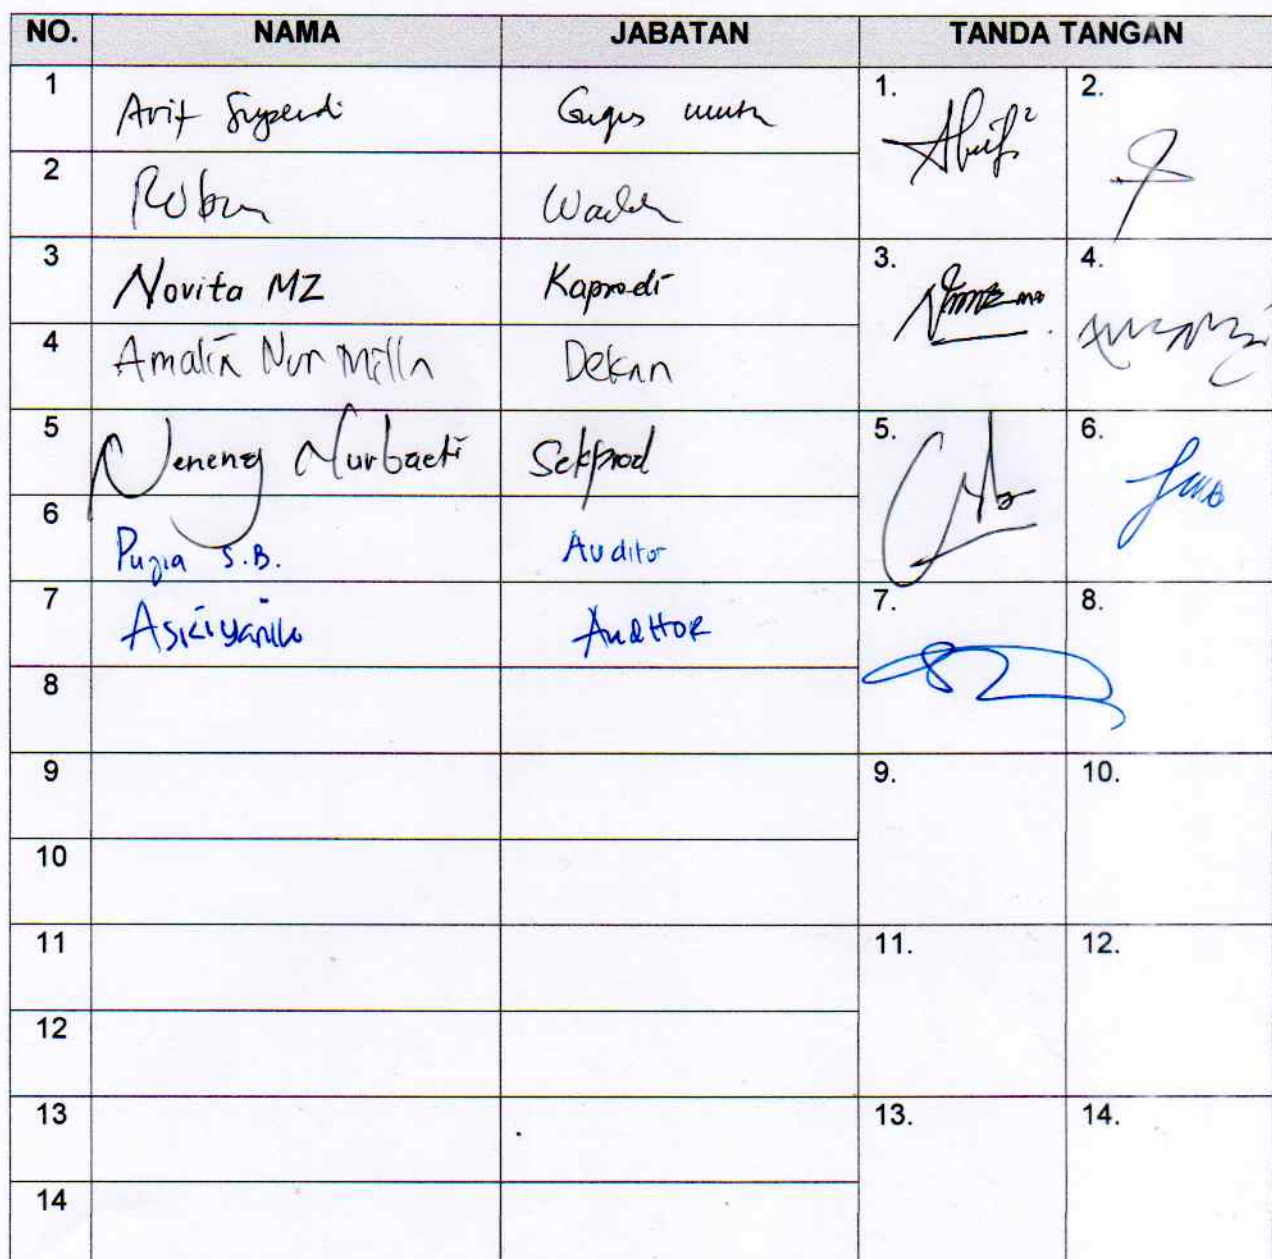 NO. NAMA JABATAN TANDA TANGAN
1 Arif Supendi Gugus mutu 1. 2.
2 Robun Wadek
3 Novita MZ Kaprodi 3. 4.
4 Amalia Nur Milla Dekan
5 Neneng Nurbaeti Sekprod 5. 6.
6 Puzia S.B. Auditor
7 Auditor 7. 8.
8
9 9. 10.
10
11 11. 12.
12
13 13. 14.
14